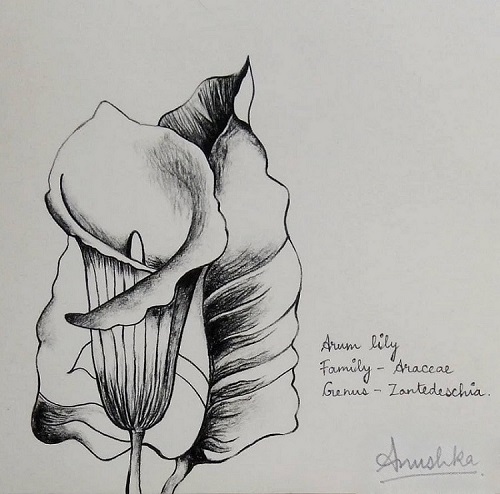 Arum lily
Family - Araceae
Genus - Zantedeschia.
Anushka